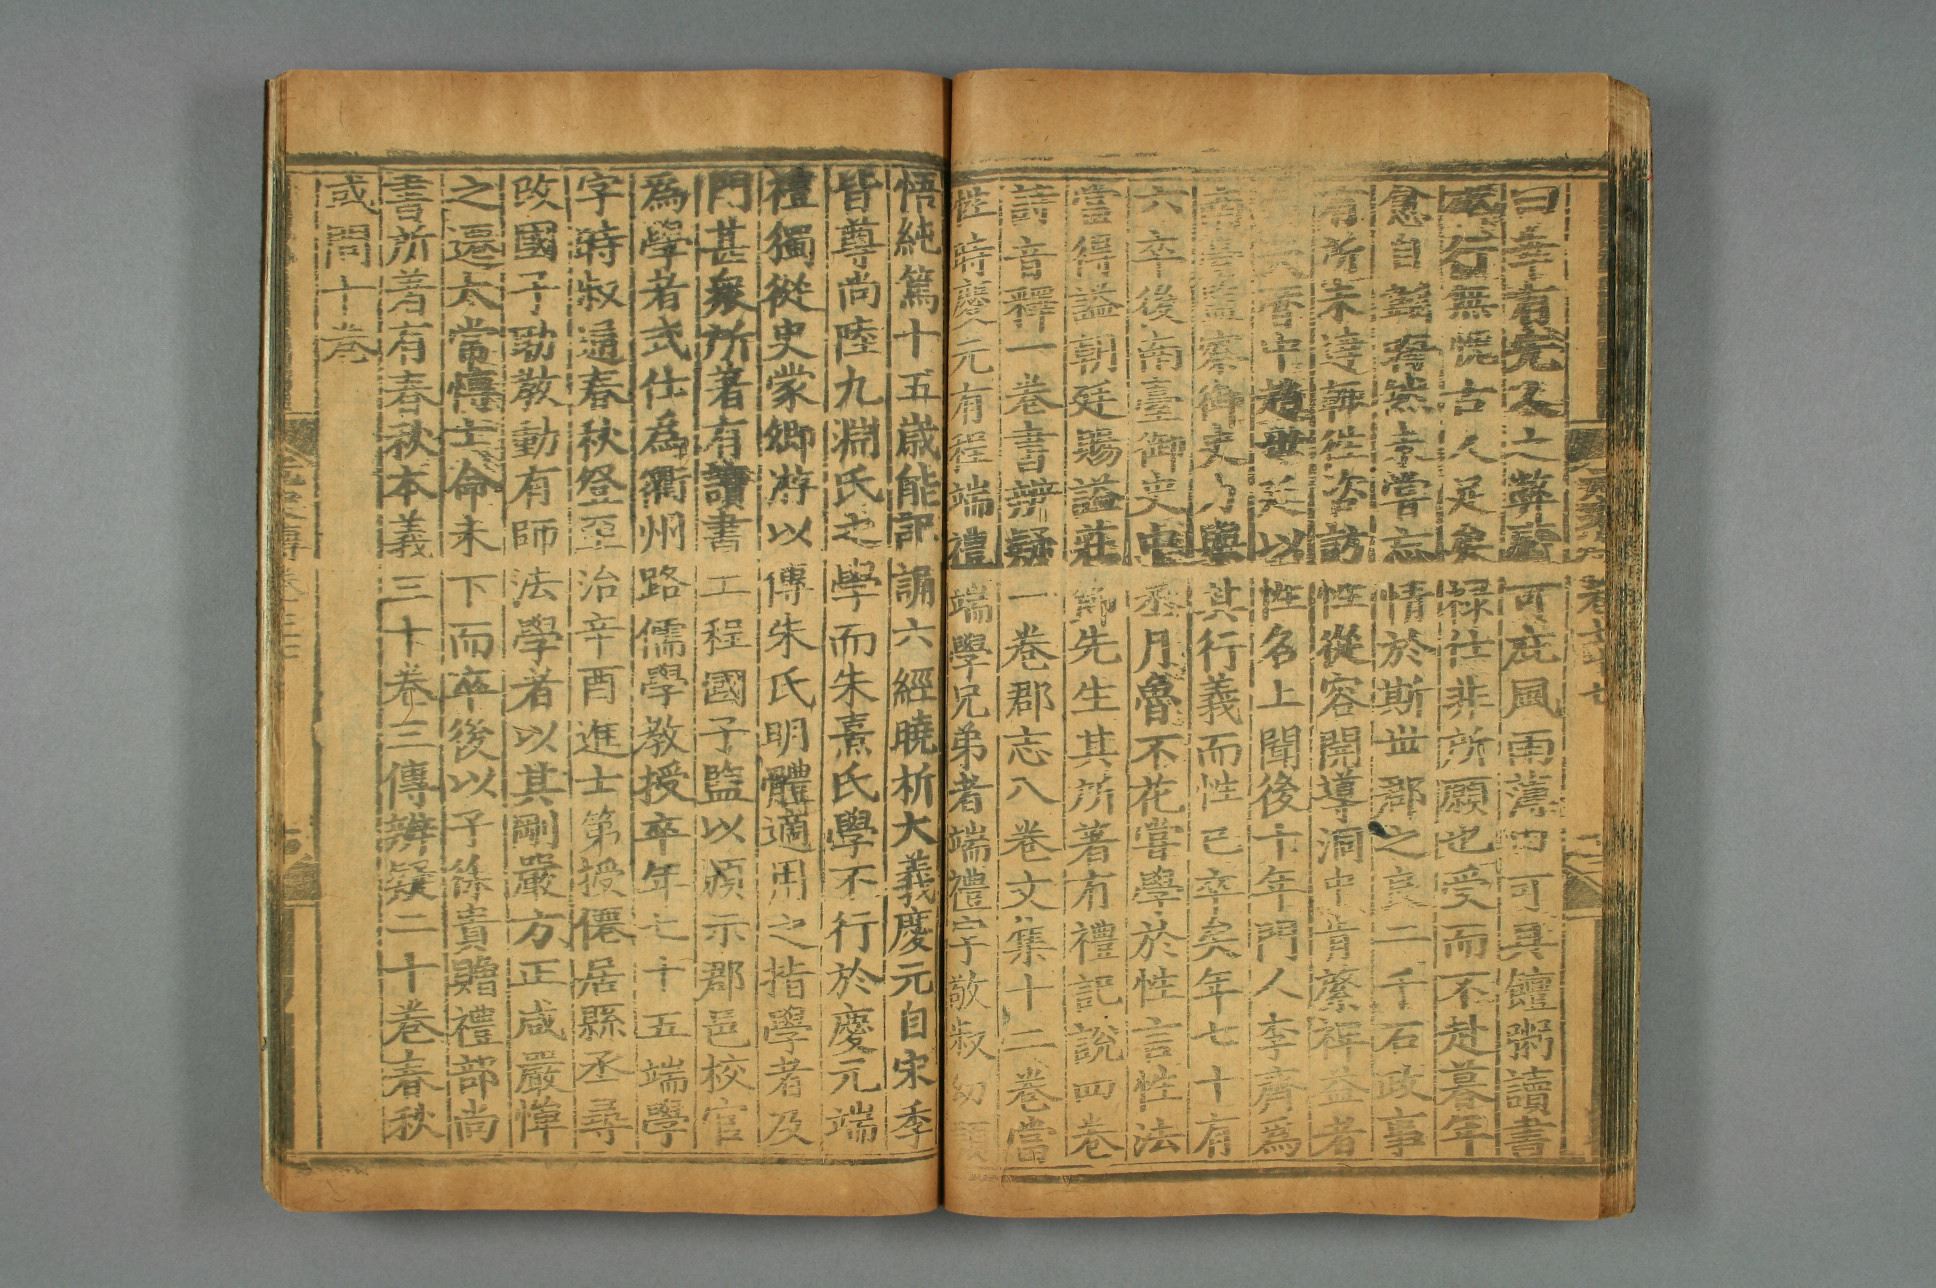 曰幸有先人之弊廬可庇風雨薄田可具饘粥讀書
行無愧古人足矣祿仕非所願也受而不赴暮年
怠自號蕘然未嘗忘情於斯世郡之良二千石政事
有所未達輒往咨訪性從容開導洞中肯綮裨益者
多天曆中趙世延以性名上聞後十年門人李齊為
南臺監察御史力舉其行義而性已卒矣年七十有
六卒後南臺御史中丞月魯不花嘗學於性言性法
當得謚朝廷賜謚莊節先生其所著有禮記說四卷
詩音釋一卷書辨疑一卷郡志八卷文集十二卷當
性時慶元有程端禮端學兄弟者端禮字敬叔幼穎
悟純篤十五歲能記誦六經曉析大義慶元自宋季
皆尊尚陸九淵氏之學而朱熹氏學不行於慶元端
禮獨從史蒙卿游以傳朱氏明體適用之指學者及
門甚衆所著有讀書工程國子監以頒示郡邑校官
為學者式仕為衢州路儒學教授卒年七十五端學
字時叔通春秋登至治辛酉進士第授僊居縣丞尋
改國子助教動有師法學者以其剛嚴方正咸嚴憚
之遷太常博士命未下而卒後以子徐貴贈禮部尚
書所著有春秋本義三十卷三傳辨疑二十卷春秋
或問十卷
元史傳卷七十七